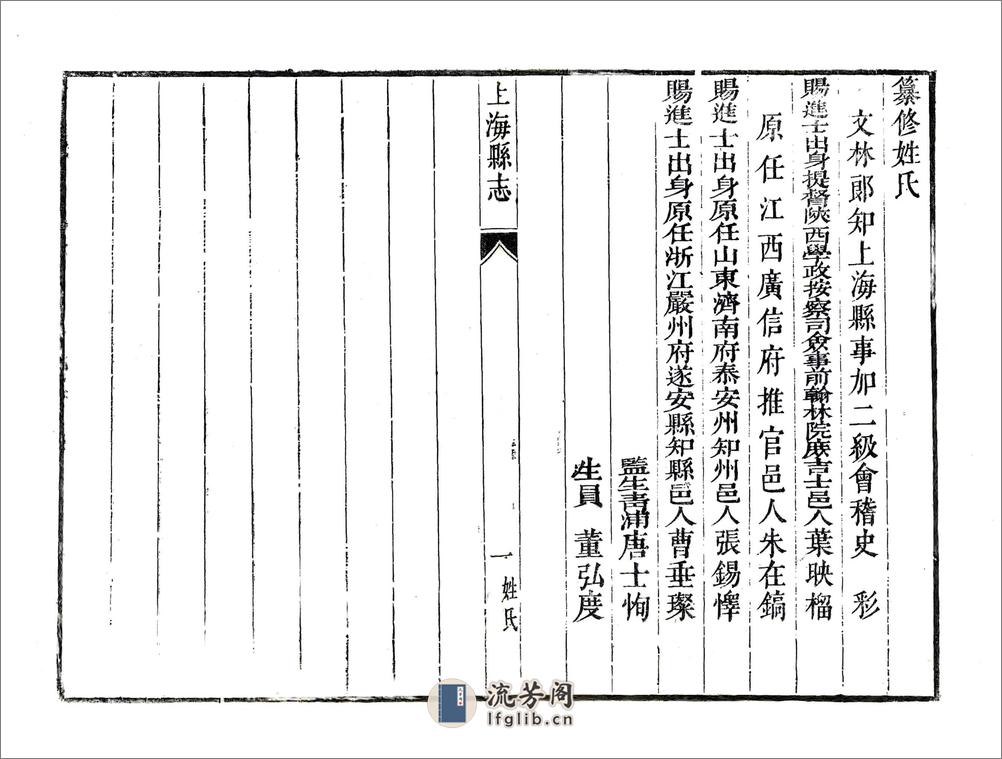 纂修姓氏
文林郎知上海縣事加二級會稽史 彩
賜進士出身提督陝西學政按察司僉事前翰林院庶吉士邑人葉映榴
原任江西廣信府推官邑人朱在鎬
賜進士出身原任山東濟南府泰安州知州邑人張錫懌
賜進士出身原任浙江嚴州府遂安縣知縣邑人曹垂璨
監生青浦唐士恂
生員 董弘度
上海縣志
一
姓氏
流芳阁
lfglib.cn